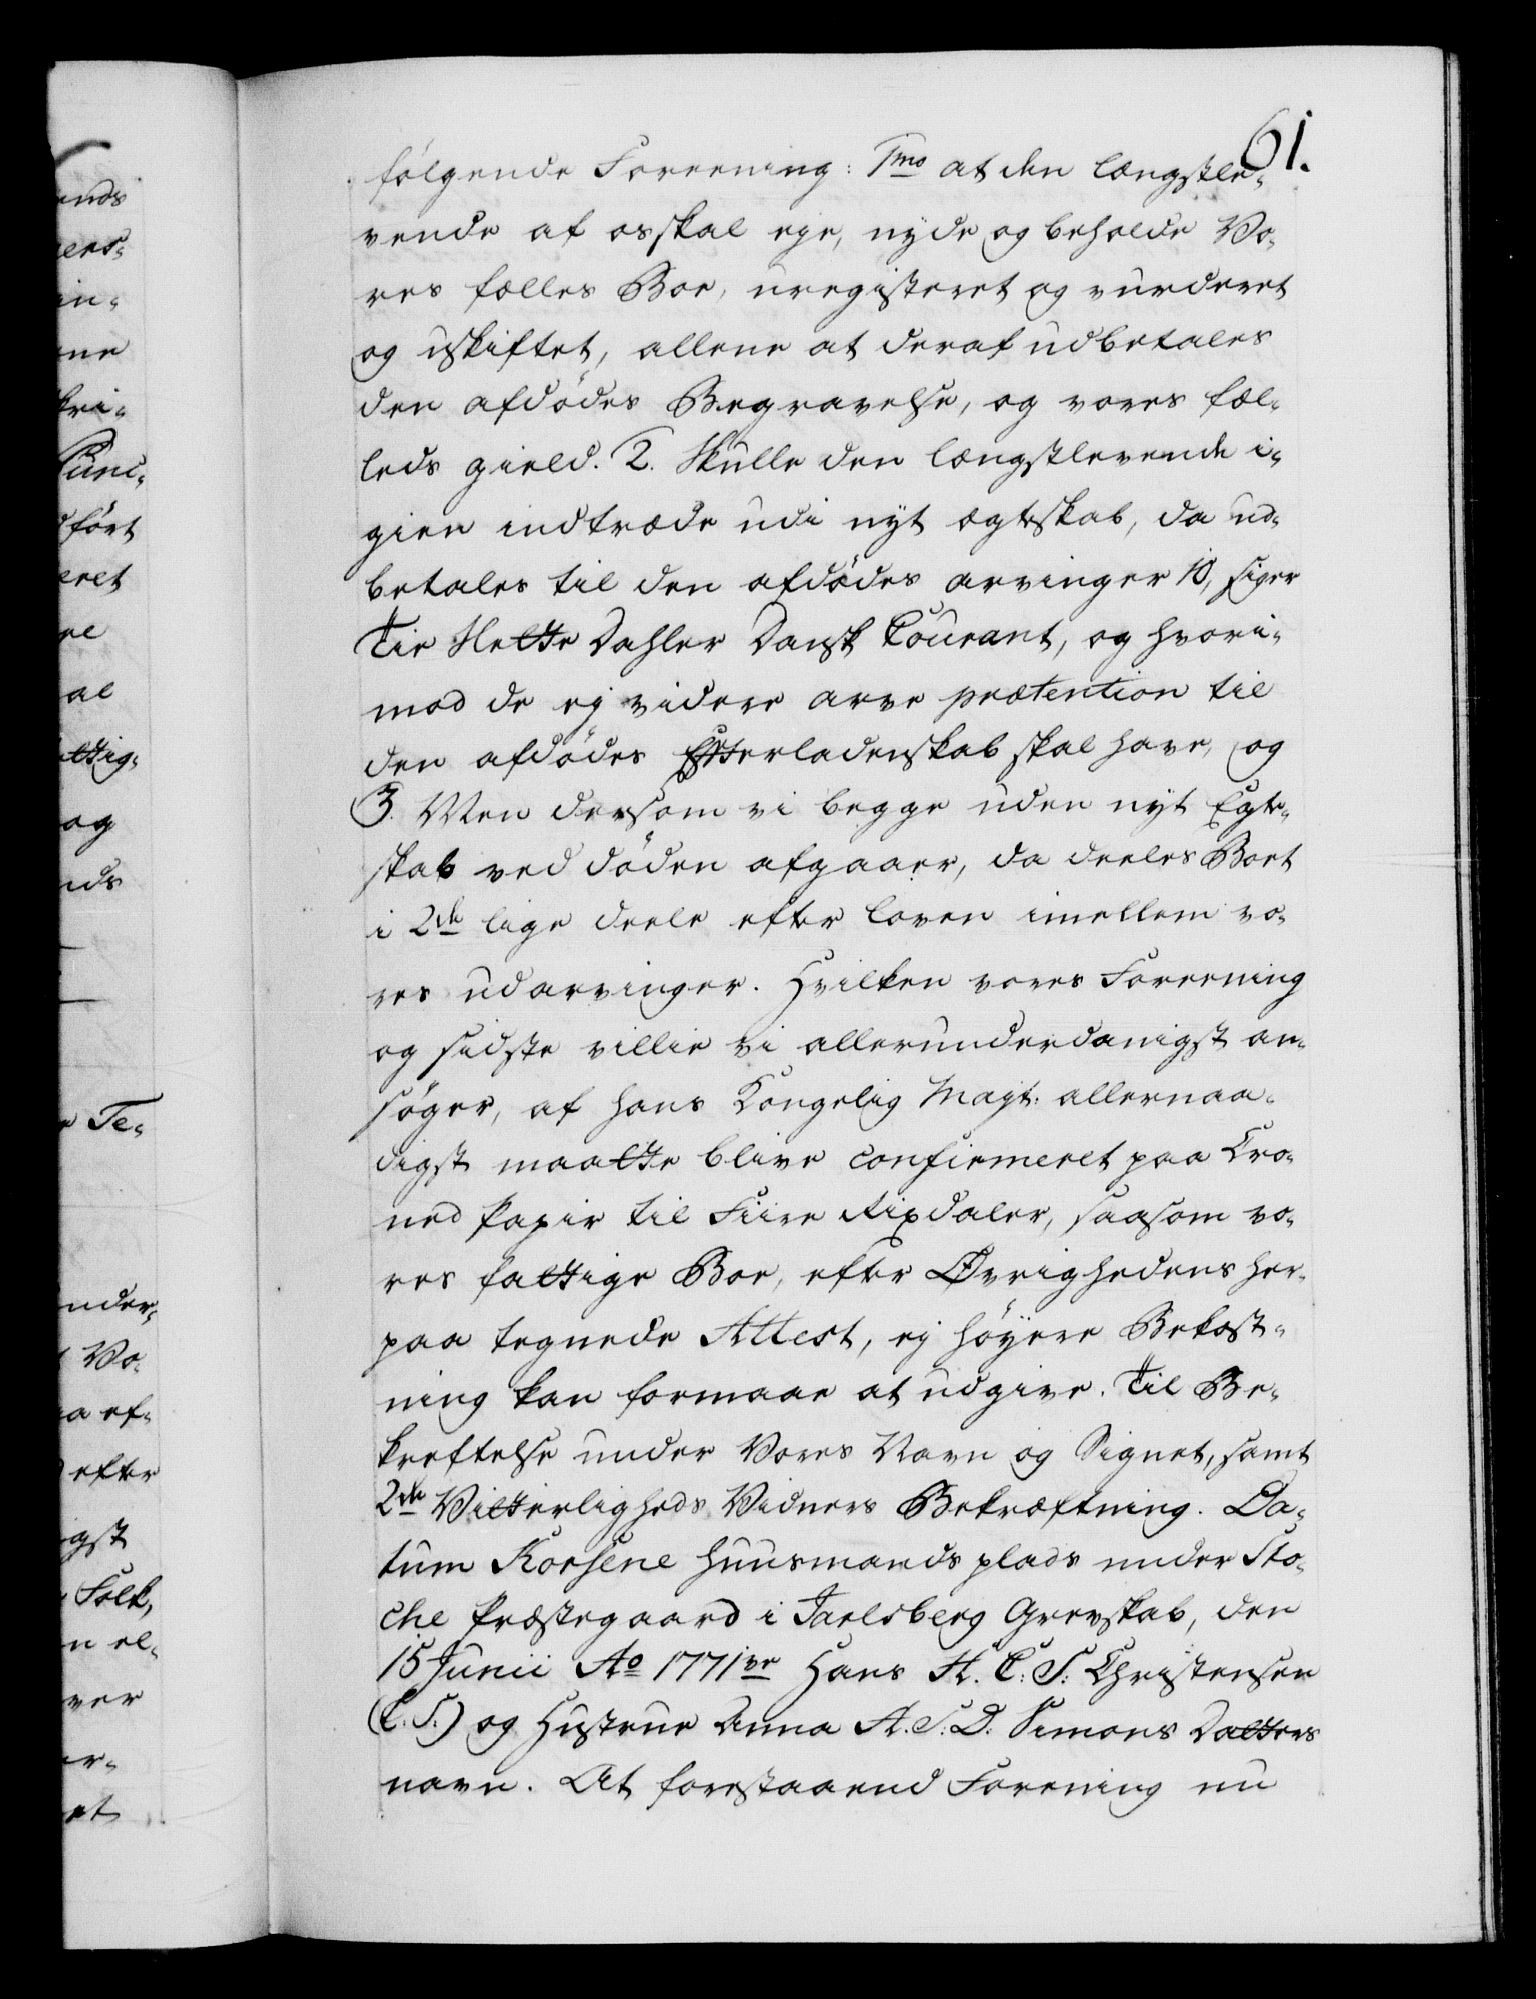 61.
følgende Foreening: 1mo at den længstle-
vende af os skal eje, nyde og beholde Vo-
res fælles Boe, uregisteret og vurderet
og uskiftet, allene at deraf udbetales
den afdødes Begravelse, og vores fæl-
leds gield. 2. Skulle den længstlevende i-
gien indtræde udi nyt ægtskab, da ud-
betales til den afdødes arvinger 10, siger
Tie Slette Dahler Dansk Courant, og hvori-
mod de ej videre arve prætention til
den afdødes Efterladenskab skal have, og
3. Men dersom vi begge uden nyt Egte-
skab ved døden afgaaer, da deeles Boet
i 2de lige deele efter loven imellem vo-
res udarvinger. Hvilken vores Foreening
og sidste villie vi allerunderdanigst an-
søger, af hans Kongelig Mayt: allernaa-
digst maatte blive confirmeret paa Cro-
ned Papir til Fiire Rixdaler, saasom vo-
res fattige Boe, efter Øvrighedens her-
paa tegnede Attest, ej høyere Bekost-
ning kan formaae at udgive. Til Be-
kreftelse under Vores Navn og Signet, samt
2de Vitterligheds Vidners Bekræftning. Da-
tum Korsene Huusmands plads under Sto-
che Præstegaard i Jarlsberg Grevskab, den
15 Junii Ao 1771ve Hans H. C: S: Christensen
(L. S.) og Hustrue Anna A. S: D: Simons Datters
navn. At forestaaend Forening nu
ends
in-
fört
eret
al
og
nds
Te-
nder-
Vo-
ef-
efter
gst
Folk,
el-
ver
et